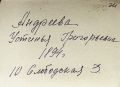 Андреева
Устинья Григорьевна
1894г.
10 Слободская 3